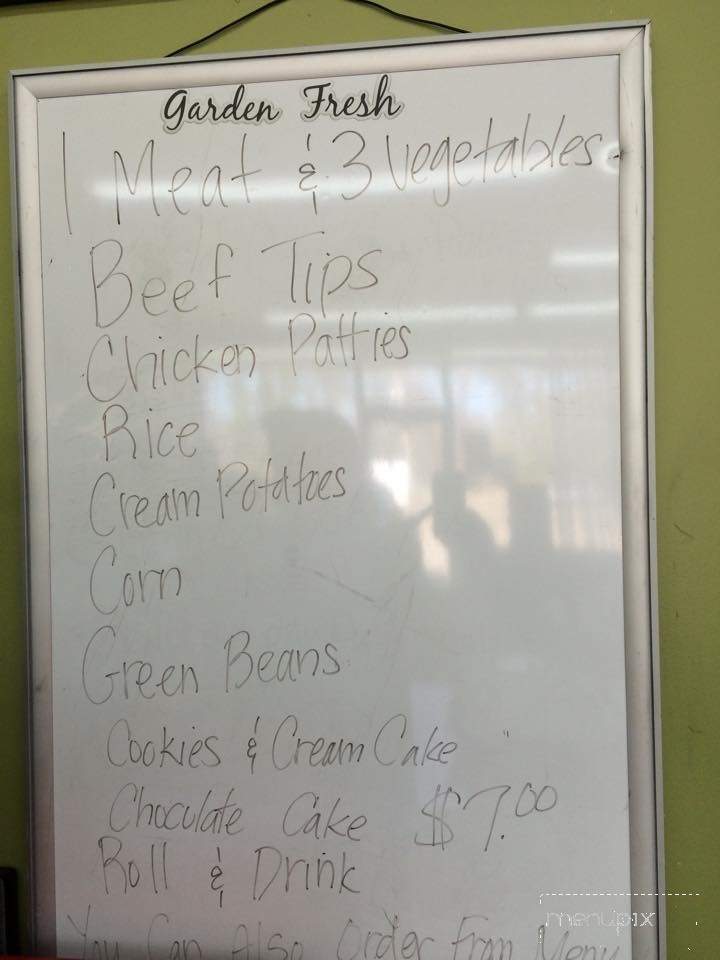 Garden Fresh
1 Meat & 3 Vegetables
Beef Tips
Chicken Patties
Rice
Cream Potatoes
Corn
Green Beans
Cookies & Cream Cake
Choculate Cake $7.00
Roll & Drink
You Can Also Order From Menu
menupix